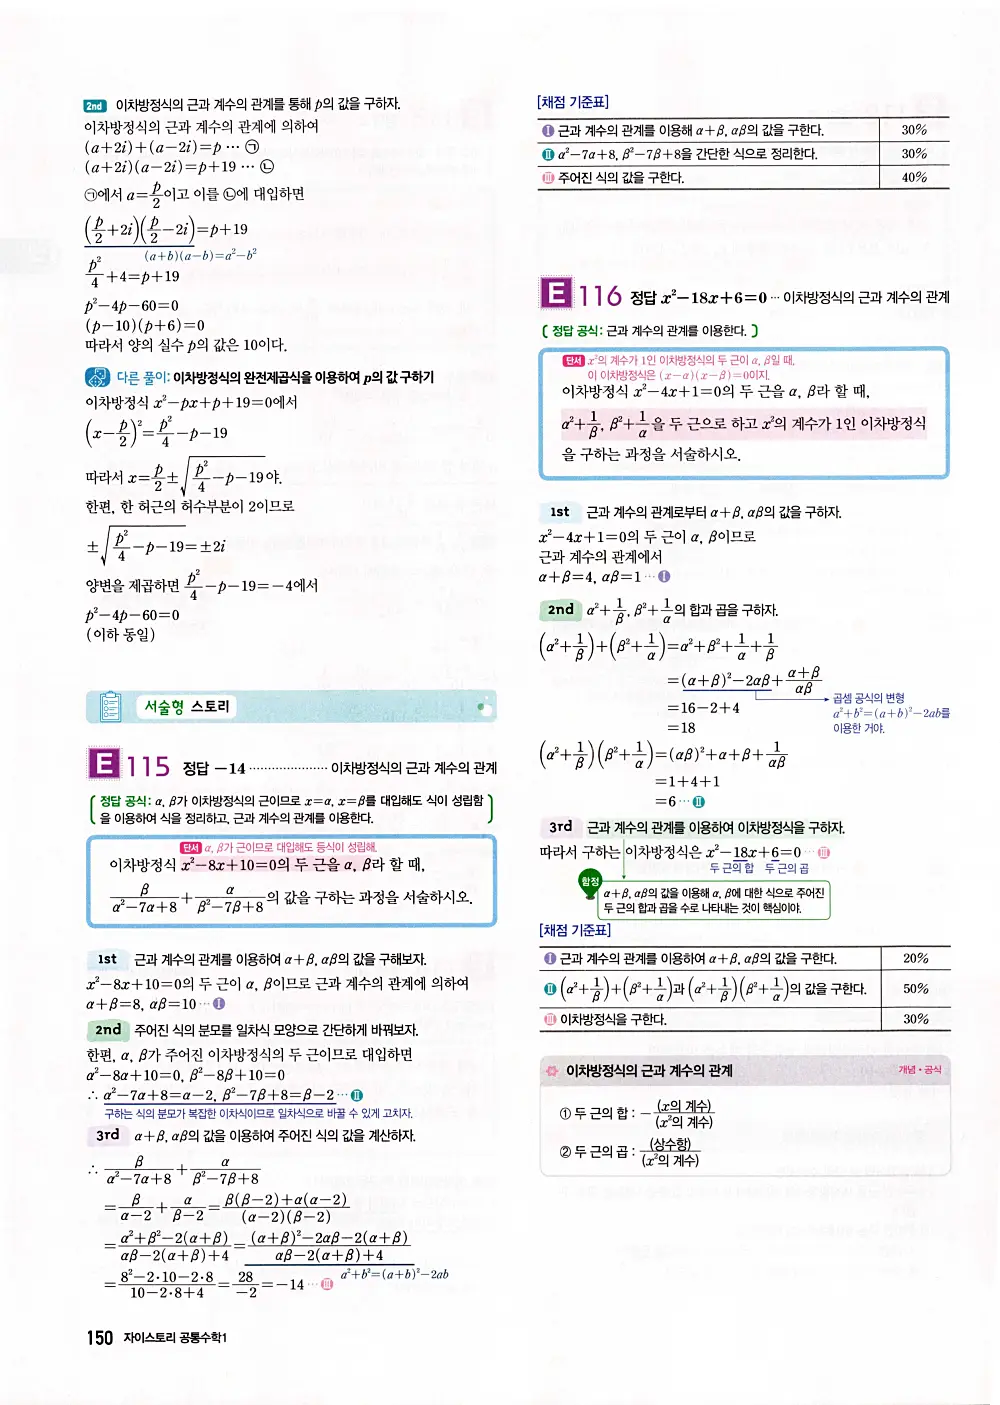 2nd 이차방정식의 근과 계수의 관계를 통해 p의 값을 구하자.
이차방정식의 근과 계수의 관계에 의하여
(a+2i)+(a-2i)=p … ㉠
(a+2i)(a-2i)=p+19 … ㉡
㉠에서 a=p/2이고 이를 ㉡에 대입하면
(p/2+2i)(p/2-2i)=p+19
(a+b)(a-b)=a²-b²
p²/4+4=p+19
p²-4p-60=0
(p-10)(p+6)=0
따라서 양의 실수 p의 값은 10이다.
다른 풀이: 이차방정식의 완전제곱식을 이용하여 p의 값 구하기
이차방정식 x²-px+p+19=0에서
(x-p/2)²=p²/4-p-19
따라서 x=p/2±√(p²/4-p-19)야.
한편, 한 허근의 허수부분이 2이므로
±√(p²/4-p-19)=±2i
양변을 제곱하면 p²/4-p-19=-4에서
p²-4p-60=0
(이하 동일)
서술형 스토리
E 115 정답 -14 ………………… 이차방정식의 근과 계수의 관계
정답 공식: α, β가 이차방정식의 근이므로 x=α, x=β를 대입해도 식이 성립함
을 이용하여 식을 정리하고, 근과 계수의 관계를 이용한다.
단서 α, β가 근이므로 대입해도 등식이 성립해.
이차방정식 x²-8x+10=0의 두 근을 α, β라 할 때,
β/(α²-7α+8)+α/(β²-7β+8)의 값을 구하는 과정을 서술하시오.
1st 근과 계수의 관계를 이용하여 α+β, αβ의 값을 구해보자.
x²-8x+10=0의 두 근이 α, β이므로 근과 계수의 관계에 의하여
α+β=8, αβ=10 … Ⅰ
2nd 주어진 식의 분모를 일차식 모양으로 간단하게 바꿔보자.
한편, α, β가 주어진 이차방정식의 두 근이므로 대입하면
α²-8α+10=0, β²-8β+10=0
∴ α²-7α+8=α-2, β²-7β+8=β-2 … Ⅱ
구하는 식의 분모가 복잡한 이차식이므로 일차식으로 바꿀 수 있게 고치자.
3rd α+β, αβ의 값을 이용하여 주어진 식의 값을 계산하자.
∴ β/(α²-7α+8)+α/(β²-7β+8)
=β/(α-2)+α/(β-2)={β(β-2)+α(α-2)}/{(α-2)(β-2)}
={α²+β²-2(α+β)}/{αβ-2(α+β)+4}={(α+β)²-2αβ-2(α+β)}/{αβ-2(α+β)+4}
=(8²-2·10-2·8)/(10-2·8+4)=28/-2=-14 … Ⅲ
α²+b²=(a+b)²-2ab
150 자이스토리 공통수학1
[채점 기준표]
Ⅰ 근과 계수의 관계를 이용해 α+β, αβ의 값을 구한다. 30%
Ⅱ α²-7α+8, β²-7β+8을 간단한 식으로 정리한다. 30%
Ⅲ 주어진 식의 값을 구한다. 40%
E 116 정답 x²-18x+6=0 … 이차방정식의 근과 계수의 관계
( 정답 공식: 근과 계수의 관계를 이용한다. )
단서 x²의 계수가 1인 이차방정식의 두 근이 α, β일 때,
이 이차방정식은 (x-α)(x-β)=0이지.
이차방정식 x²-4x+1=0의 두 근을 α, β라 할 때,
α²+1/β, β²+1/α을 두 근으로 하고 x²의 계수가 1인 이차방정식
을 구하는 과정을 서술하시오.
1st 근과 계수의 관계로부터 α+β, αβ의 값을 구하자.
x²-4x+1=0의 두 근이 α, β이므로
근과 계수의 관계에서
α+β=4, αβ=1 … Ⅰ
2nd α²+1/β, β²+1/α의 합과 곱을 구하자.
(α²+1/β)+(β²+1/α)=α²+β²+1/α+1/β
=(α+β)²-2αβ+(α+β)/αβ
곱셈 공식의 변형
a²+b²=(a+b)²-2ab를
이용한 거야.
=16-2+4
=18
(α²+1/β)(β²+1/α)=(αβ)²+α+β+1/αβ
=1+4+1
=6 … Ⅱ
3rd 근과 계수의 관계를 이용하여 이차방정식을 구하자.
따라서 구하는 이차방정식은 x²-18x+6=0 … Ⅲ
두 근의 합 두 근의 곱
함정 α+β, αβ의 값을 이용해 α, β에 대한 식으로 주어진
두 근의 합과 곱을 수로 나타내는 것이 핵심이야.
[채점 기준표]
Ⅰ 근과 계수의 관계를 이용하여 α+β, αβ의 값을 구한다. 20%
Ⅱ (α²+1/β)+(β²+1/α)과 (α²+1/β)(β²+1/α)의 값을 구한다. 50%
Ⅲ 이차방정식을 구한다. 30%
이차방정식의 근과 계수의 관계 개념·공식
① 두 근의 합 : -(x의 계수)/(x²의 계수)
② 두 근의 곱 : (상수항)/(x²의 계수)